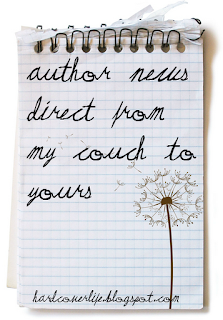 author news
direct from
my couch to
yours
hardcoverlife.blogspot.com